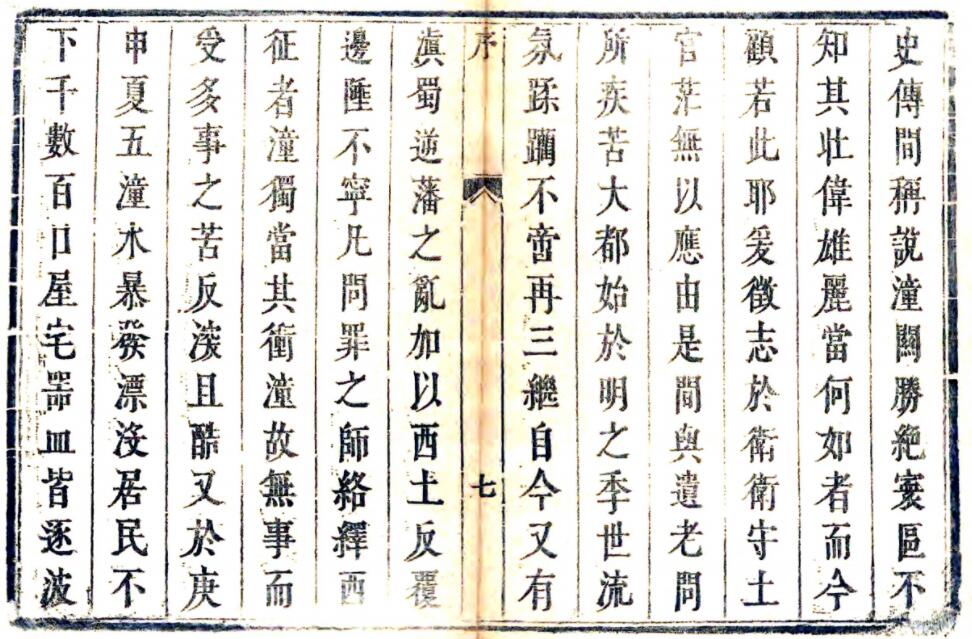 史傳間稱說潼關勝絶寰區不
知其壮偉雄麗當何如者而今
顧若此耶爰徵志於衛衛守土
官茫無以應由是間與遺老問
所疾苦大都始於明之季世流
氛蹂躪不啻再三繼自今又有
序 七
滇蜀逆藩之亂加以西土反覆
邊陲不寧凡問罪之師絡繹西
征者潼獨當其衝潼故無事而
受多事之苦反深且酷又於庚
申夏五潼水暴發漂沒居民不
下千數百口屋宅器皿皆逐波